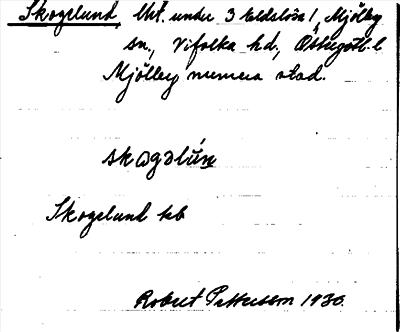 Skogelund, lht. under 3 Eldslösa 1, Mjölby
sn., Vifolka hd., Östergötl. l
Mjölby numera stad.
skogəlún
Skogelund kb
Robert Pettersson 1930.